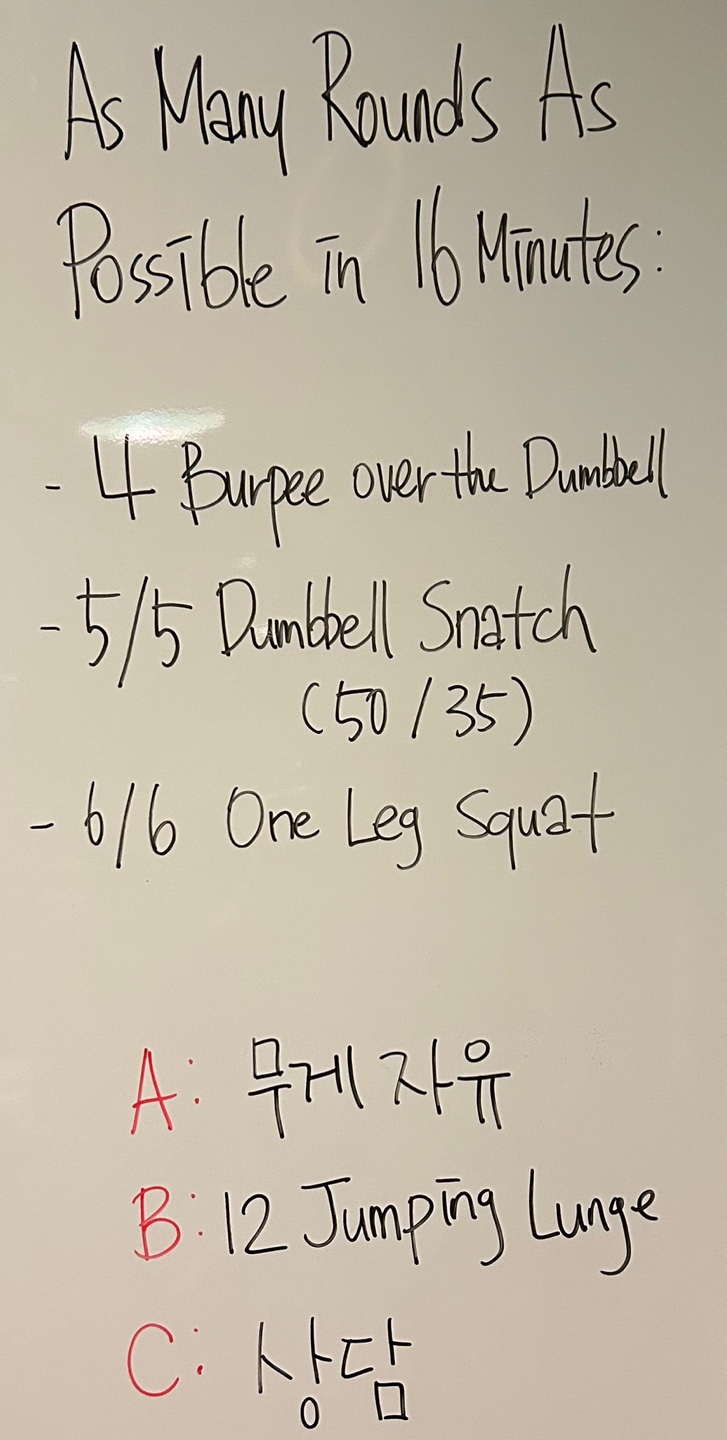 As Many Rounds As
Possible in 16 Minutes:
- 4 Burpee over the Dumbbell
- 5/5 Dumbbell Snatch
(50/35)
- 6/6 One Leg Squat
A: 무게 자유
B: 12 Jumping Lunge
C: 상담